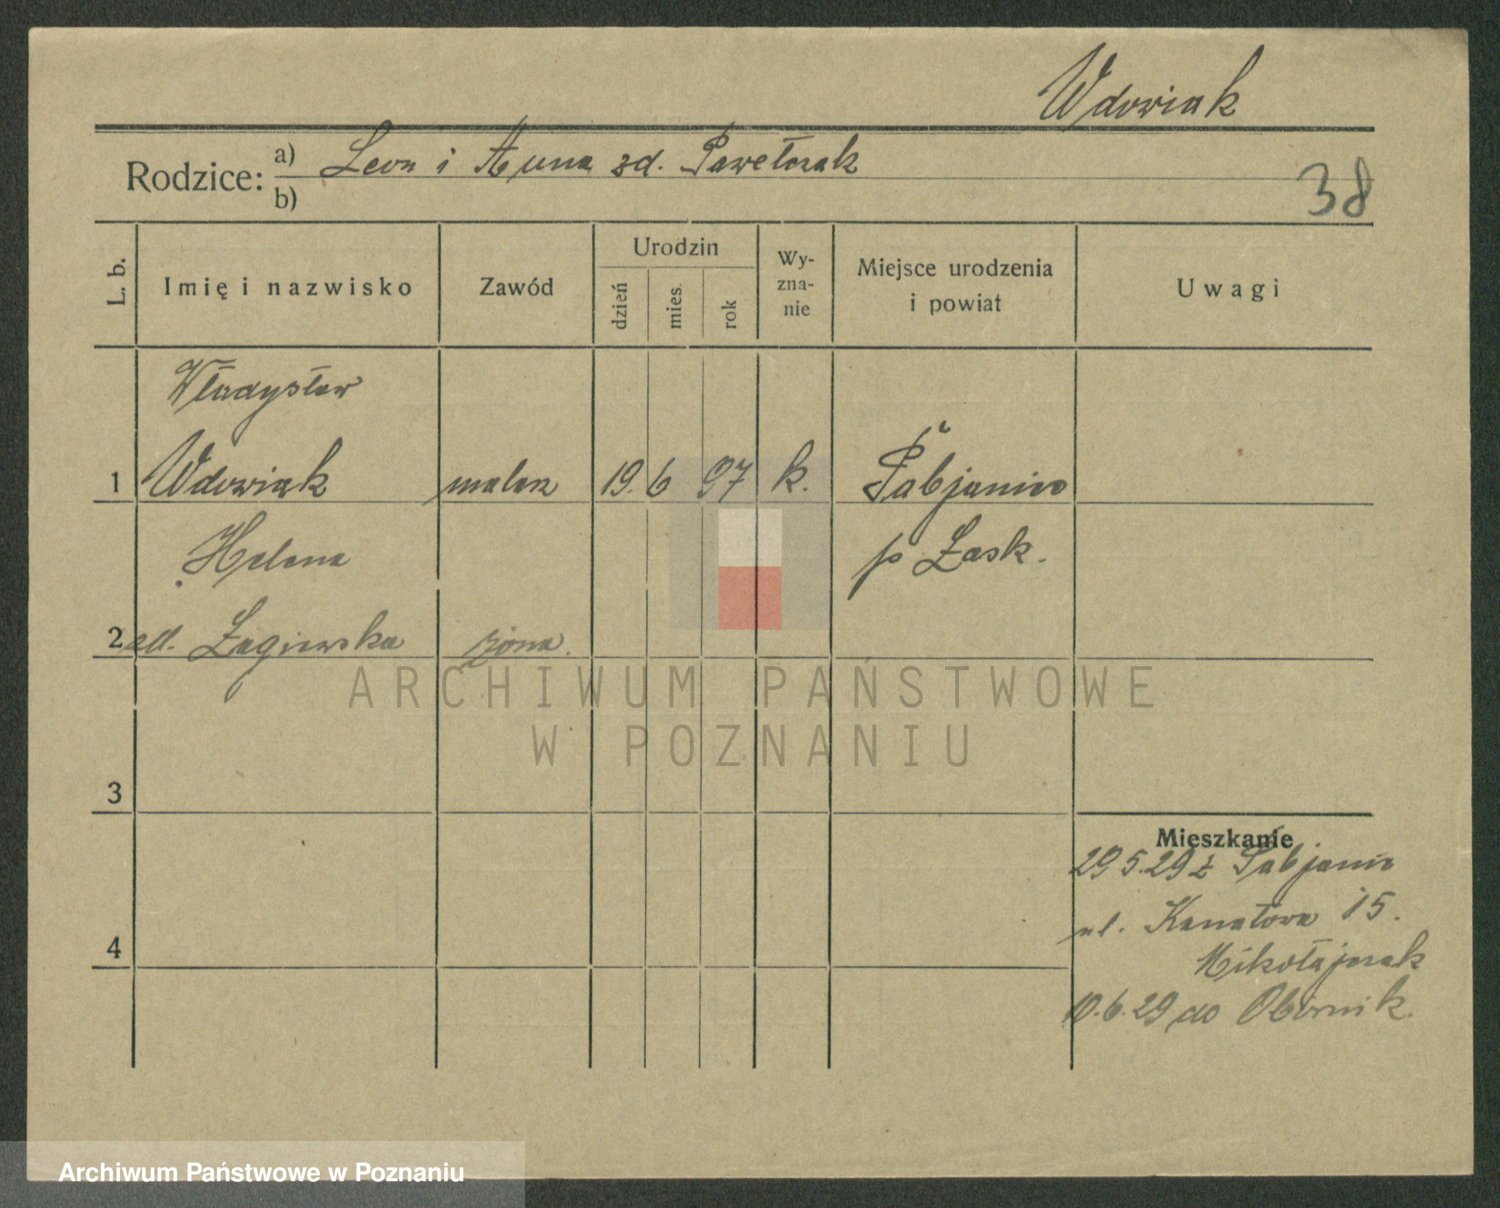 Wdowiak
Rodzice: a) Leon i Anna zd. Pawełczak
b)
38
L. b.
Imię i nazwisko
Zawód
Urodzin
dzień
mies.
rok
Wy-
zna-
nie
Miejsce urodzenia
i powiat
Uwagi
Władysław
1 Wdowiak malarz 19. 6 97 k. Pabjanice
Helena
p Łask.
2 zd. Łagiewska żona.
ARCHIWUM PAŃSTWOWE
W POZNANIU
3
Mieszkanie
29 5.29 z Pabjanic
ul. Kanałowa 15.
4
Mikołajczak
10.6.29 do Obornik.
Archiwum Państwowe w Poznaniu